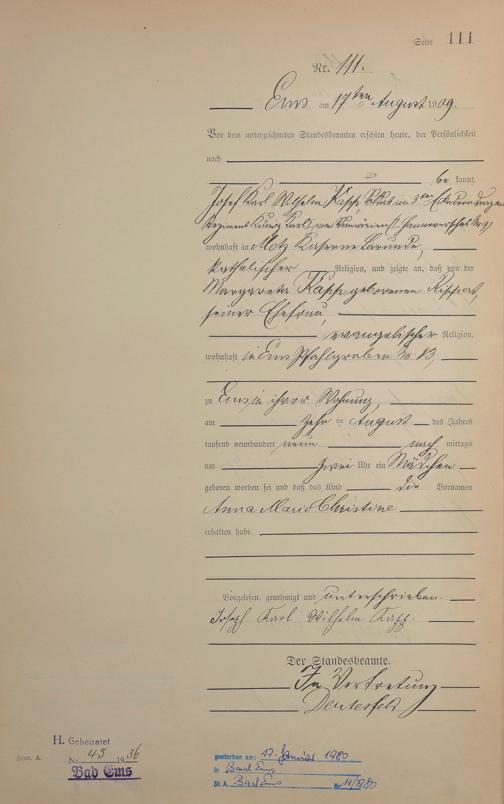 Seite 111
Nr. 111.
Ems am 17ten August 1909.
Vor dem unterzeichneten Standesbeamten erschien heute, der Persönlichkeit
nach
be kannt,
Josef Karl Wilhelm Kapp, im 3ten
Regiment König Karl von Rumänien (1. Hannoversches No 9)
wohnhaft in Metz Kaserne
katholischer Religion, und zeigte an, daß von der
Margareta Kapp geborenen
seiner Ehefrau,
evangelischer Religion,
wohnhaft in Ems Pfahlgraben No 13,
zu Ems in ihrer Wohnung,
am Zehn ten August des Jahres
tausend neunhundert neun nach mittags
um zwei Uhr ein Mädchen
geboren worden sei und daß das Kind die Vornamen
Anna Maria Christine
erhalten habe.
Vorgelesen, genehmigt und unterschrieben.
Joseph Karl Wilhelm Kapp.
Der Standesbeamte.
In Vertretung
H. Geheiratet
Form. A.
Nr. 45 1936
Bad Ems
gestorben am: 17. Januar 1980
in Bad Ems
St. A. Bad Ems Nr. 11/1980